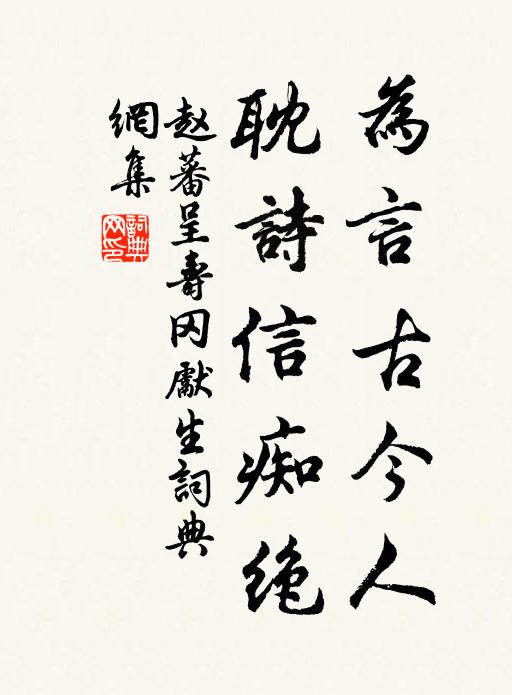 為言古今人
耽詩信痴绝
赵蕃呈壽冈獻生詞典
網集
詞典
网印